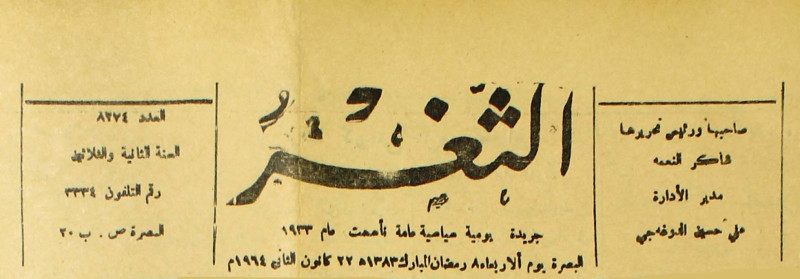 صاحبها ورئيس تحريرها
شاكر النعمه
مدير الأدارة
علي حسين
الثغر
جريدة يومية سياسية عامة تأسست عام ١٩٣٣
البصرة يوم ألاربعاء ٨ رمضان المبارك ١٣٨٣ه ٢٢ كانون الثاني ١٩٦٤م
العدد ٨٢٧٤
السنة الثانية والثلاثون
رقم التلفون ٣٣٣٤
البصرة ص . ب ٢٠